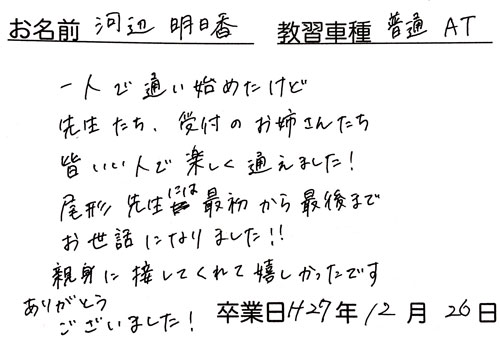 お名前 河辺 明日香 教習車種 普通 AT
一人で通い始めたけど
先生たち、受付のお姉さんたち
皆いい人で楽しく通えました!
尾形先生には最初から最後まで
お世話になりました!!
親身に接してくれて嬉しかったです
ありがとう
ございました!
卒業日H27年12月26日